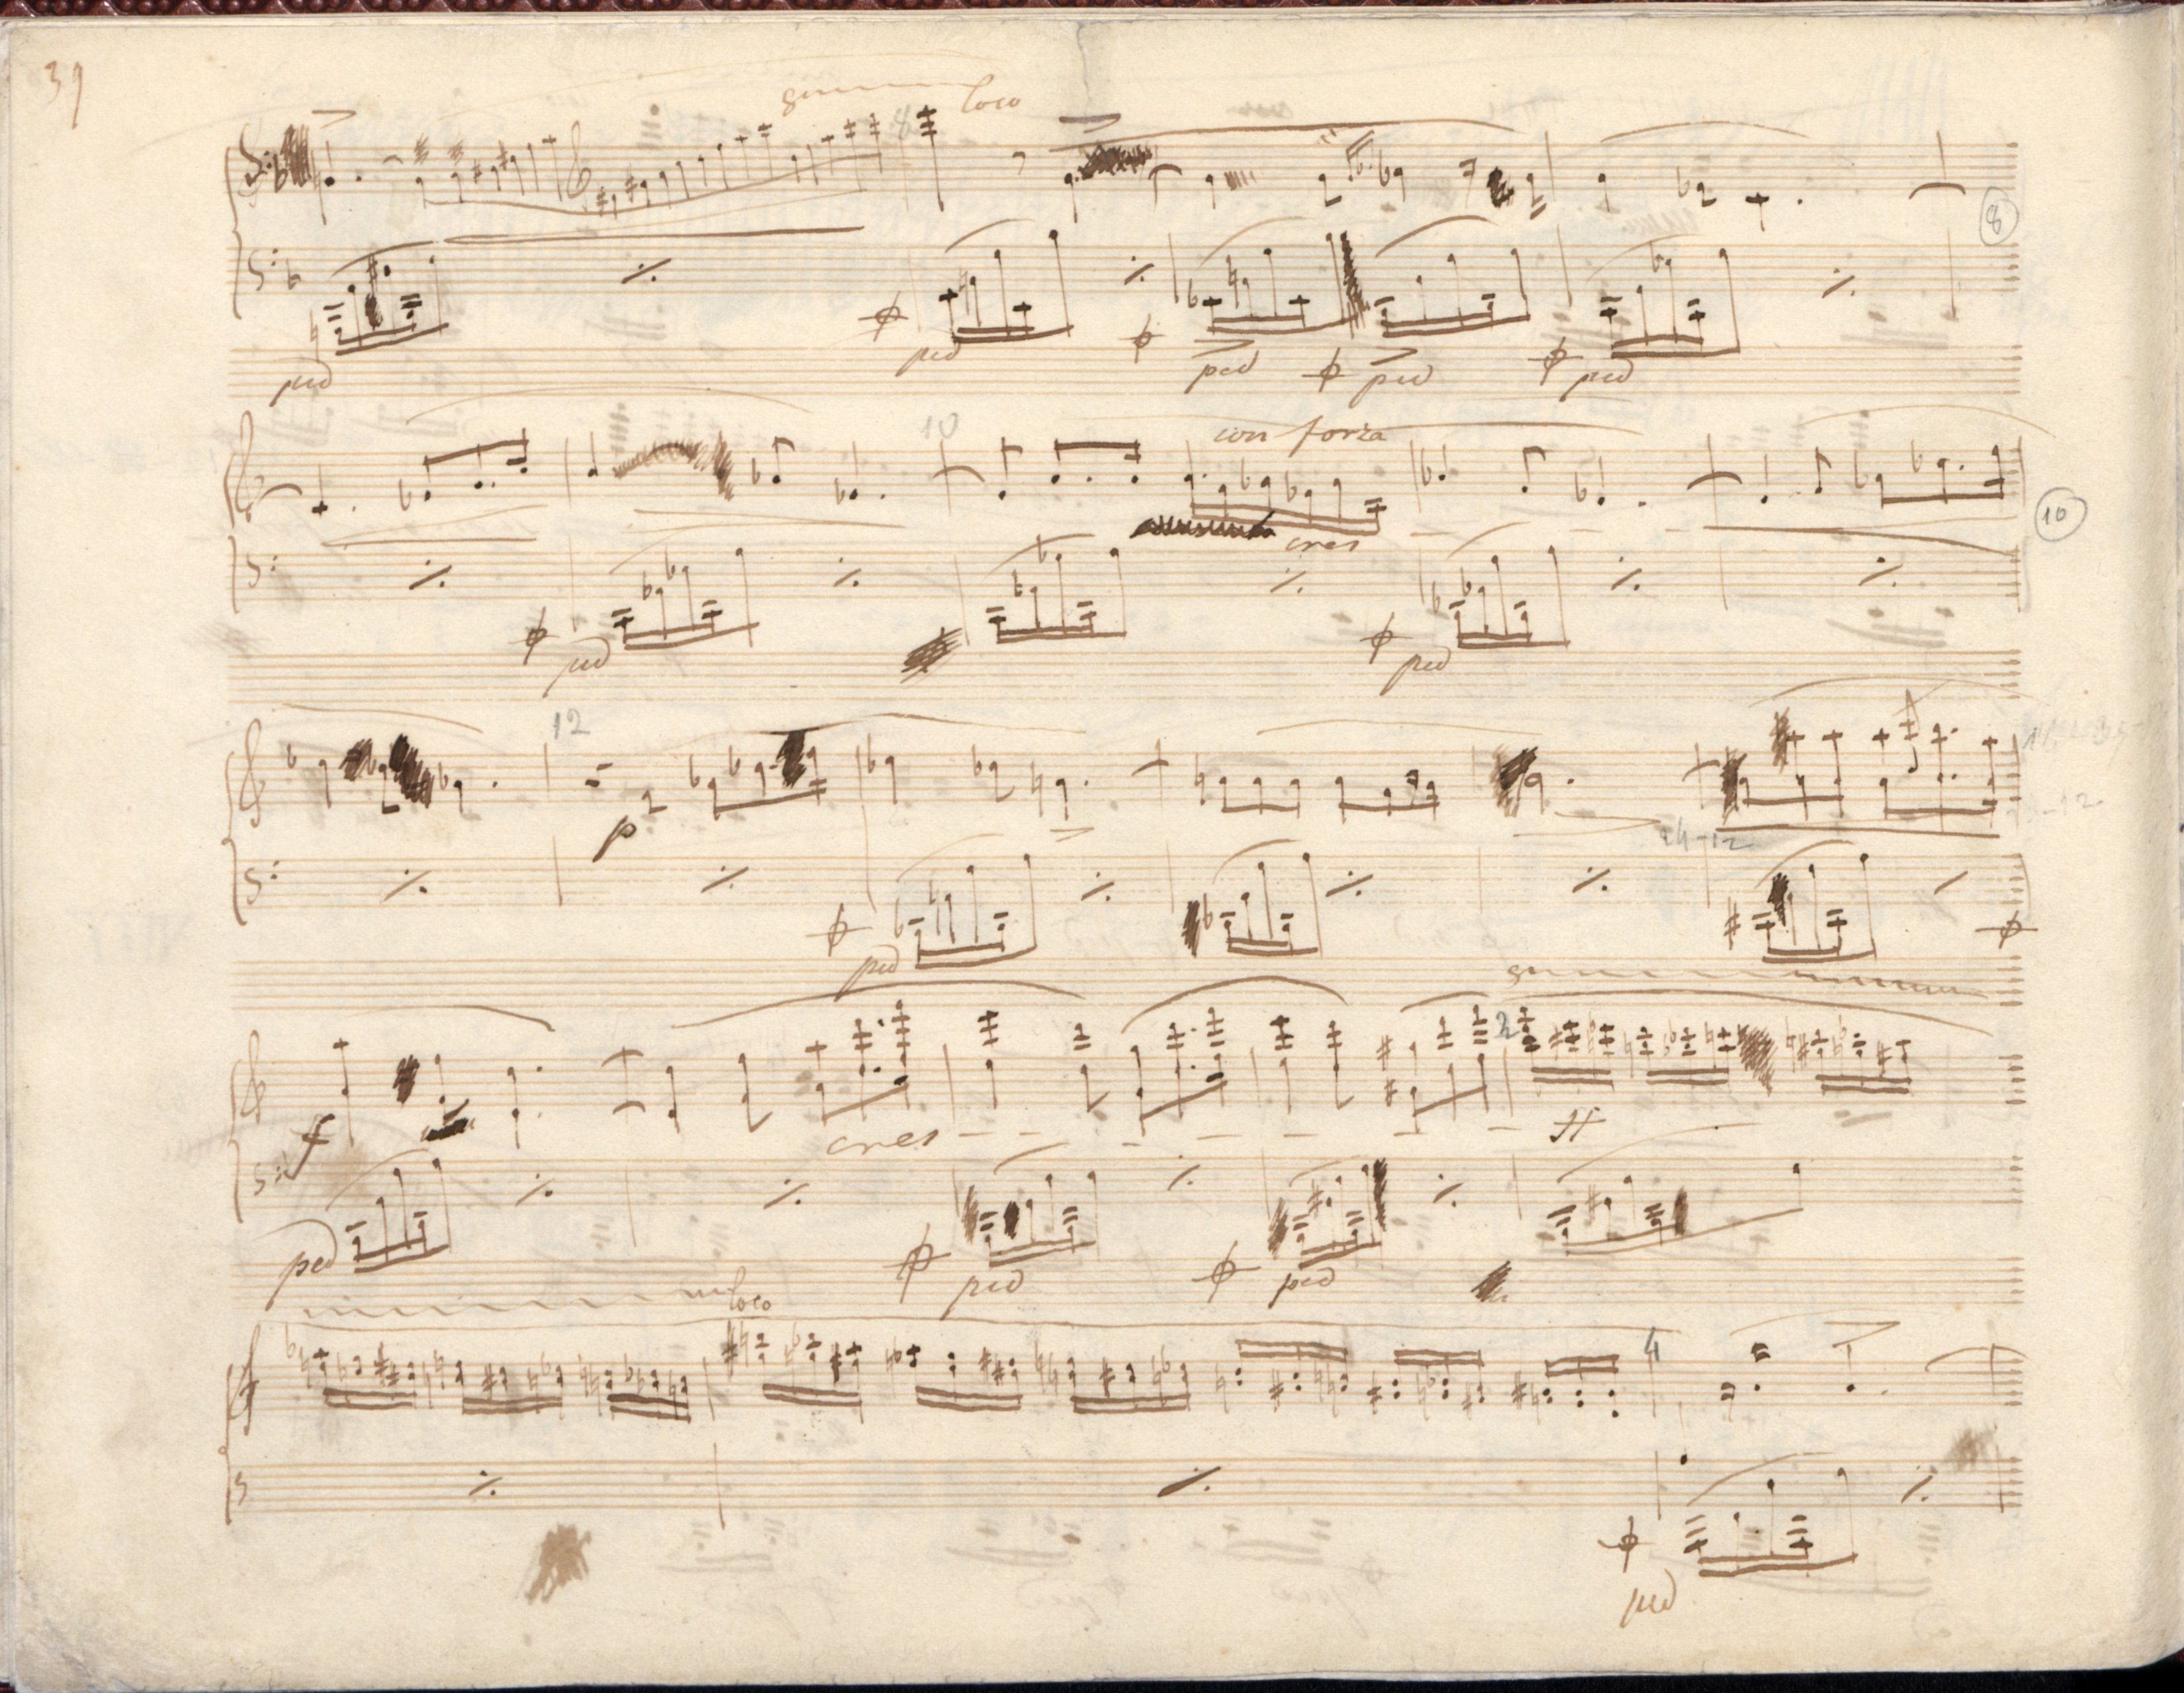 39
8 loco
8
ped ped ped ped ped
10 con forza
cres
10
ped ped
12
p
24-12
ped
8
2
f cres ff
ped ped ped
loco
4
ped